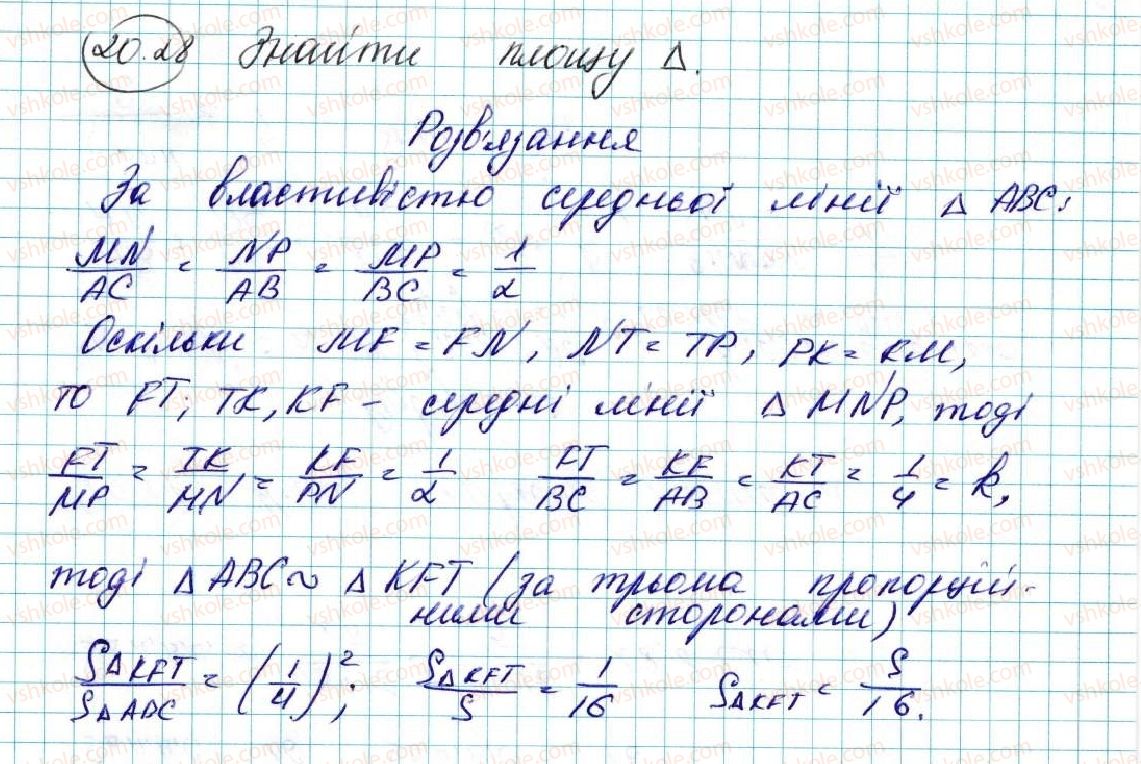 20.28 Знайти площу Δ.
Розв'язання
За властивістю середньої лінії Δ ABC:
MN/AC = NP/AB = MP/BC = 1/2
Оскільки MF = FN, NT = TP, PK = KM,
то FT, TK, KF – середні лінії Δ MNP, тоді
FT/MP = TK/MN = KF/PN = 1/2 FT/BC = KF/AB = KT/AC = 1/4 = k,
тоді Δ ABC ~ Δ KFT (за трьома пропорцій-
ними сторонами)
SΔKFT/SΔABC = (1/4)²; SΔKFT/S = 1/16 SΔKFT = S/16.